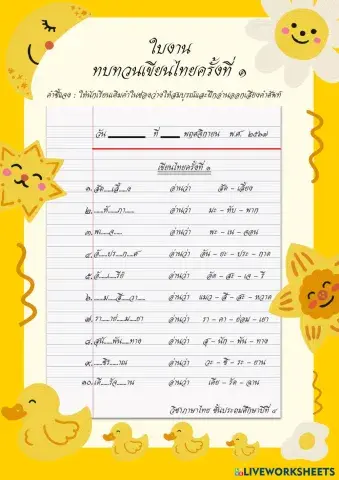 ใบงาน
ทบทวนเขียนไทยครั้งที่ ๑
คำชี้แจง : ให้นักเรียนเติมคำในช่องว่างให้สมบูรณ์และฝึกอ่านออกเสียงคำศัพท์
วัน ________ ที่ ____ พฤศจิกายน พ.ศ. ๒๕๖๗
เขียนไทยครั้งที่ ๑
๑.อัด....เสี้....ง อ่านว่า อัด - เสียง
๒.....ทั....ภา..... อ่านว่า มะ - ทับ - พาก
๓.พเ....จ.... อ่านว่า พะ - เน - จอน
๔.อั....ปร....ก....ต์ อ่านว่า อัน - ยะ - ประ - กาด
๕.อั....เ....รีย์ อ่านว่า อัด - สะ - เจ - รี
๖.....ม....สี....วา.... อ่านว่า แมว - สี - สะ - หวาด
๗.รา....ย่....ม....ยา อ่านว่า รา - คา - ย่อม - เยา
๘.สุนั....พัน....ทาง อ่านว่า สุ - นัก - พัน - ทาง
๙.....ชิร....าณ อ่านว่า วะ - ชิ - ระ - ยาน
๑๐.เดี....รัจ....น อ่านว่า เดีย - รัด - ฉาน
วิชาภาษาไทย ชั้นประถมศึกษาปีที่ ๔
LIVEWORKSHEETS